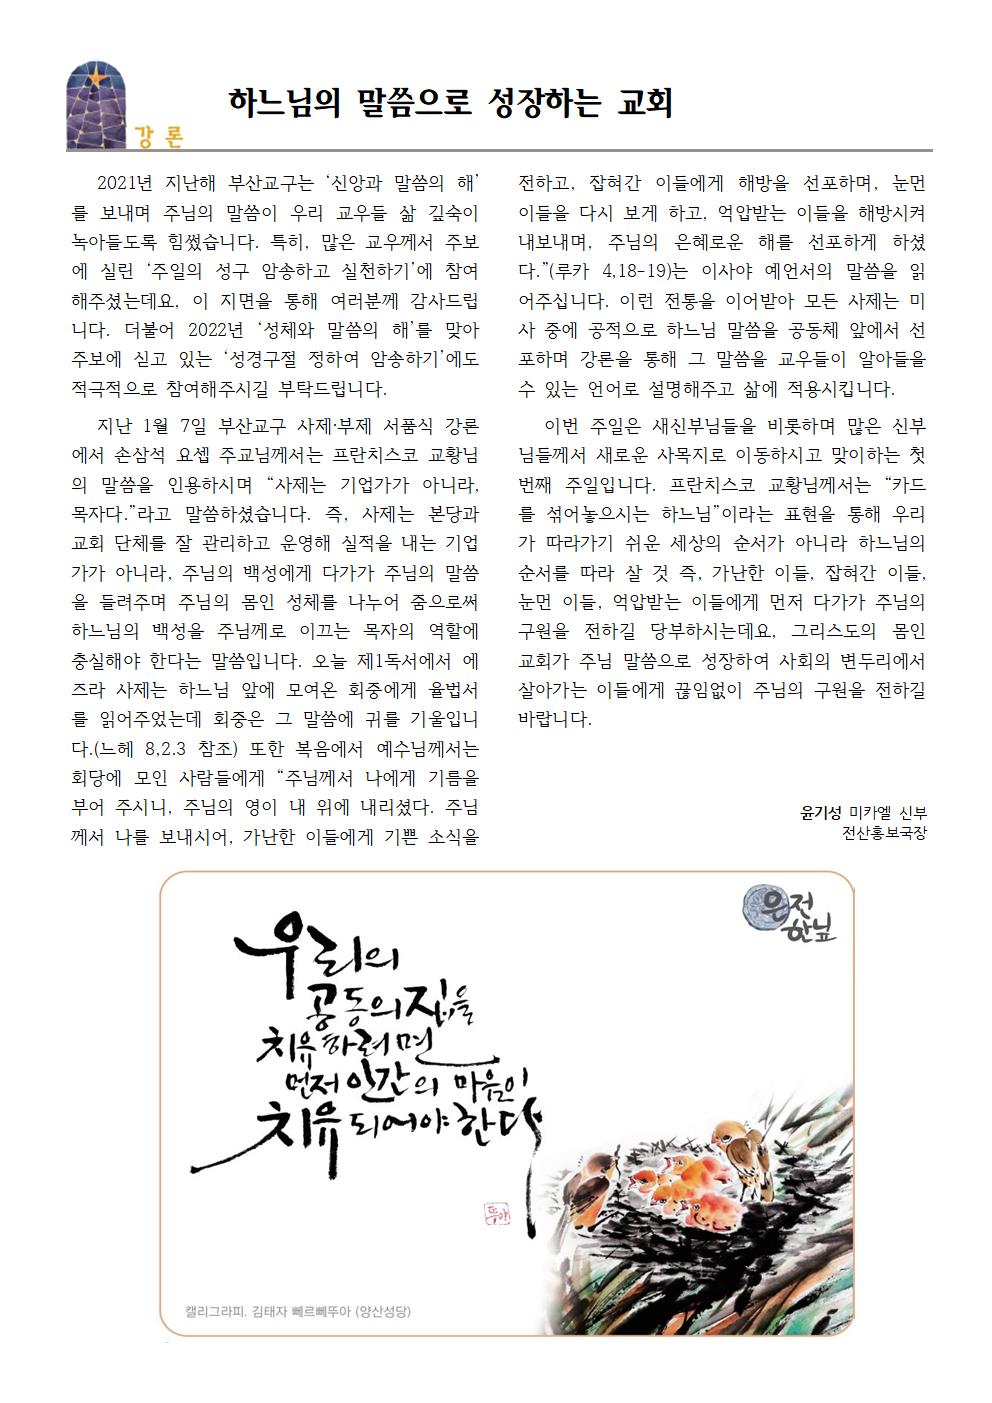 강 론
하느님의 말씀으로 성장하는 교회
2021년 지난해 부산교구는 ‘신앙과 말씀의 해’
를 보내며 주님의 말씀이 우리 교우들 삶 깊숙이
녹아들도록 힘썼습니다. 특히, 많은 교우께서 주보
에 실린 ‘주일의 성구 암송하고 실천하기’에 참여
해주셨는데요, 이 지면을 통해 여러분께 감사드립
니다. 더불어 2022년 ‘성체와 말씀의 해’를 맞아
주보에 싣고 있는 ‘성경구절 정하여 암송하기’에도
적극적으로 참여해주시길 부탁드립니다.
지난 1월 7일 부산교구 사제·부제 서품식 강론
에서 손삼석 요셉 주교님께서는 프란치스코 교황님
의 말씀을 인용하시며 “사제는 기업가가 아니라,
목자다.”라고 말씀하셨습니다. 즉, 사제는 본당과
교회 단체를 잘 관리하고 운영해 실적을 내는 기업
가가 아니라, 주님의 백성에게 다가가 주님의 말씀
을 들려주며 주님의 몸인 성체를 나누어 줌으로써
하느님의 백성을 주님께로 이끄는 목자의 역할에
충실해야 한다는 말씀입니다. 오늘 제1독서에서 에
즈라 사제는 하느님 앞에 모여온 회중에게 율법서
를 읽어주었는데 회중은 그 말씀에 귀를 기울입니
다.(느헤 8,2.3 참조) 또한 복음에서 예수님께서는
회당에 모인 사람들에게 “주님께서 나에게 기름을
부어 주시니, 주님의 영이 내 위에 내리셨다. 주님
께서 나를 보내시어, 가난한 이들에게 기쁜 소식을
전하고, 잡혀간 이들에게 해방을 선포하며, 눈먼
이들을 다시 보게 하고, 억압받는 이들을 해방시켜
내보내며, 주님의 은혜로운 해를 선포하게 하셨
다.”(루카 4,18-19)는 이사야 예언서의 말씀을 읽
어주십니다. 이런 전통을 이어받아 모든 사제는 미
사 중에 공적으로 하느님 말씀을 공동체 앞에서 선
포하며 강론을 통해 그 말씀을 교우들이 알아들을
수 있는 언어로 설명해주고 삶에 적용시킵니다.
이번 주일은 새신부님들을 비롯하며 많은 신부
님들께서 새로운 사목지로 이동하시고 맞이하는 첫
번째 주일입니다. 프란치스코 교황님께서는 “카드
를 섞어놓으시는 하느님”이라는 표현을 통해 우리
가 따라가기 쉬운 세상의 순서가 아니라 하느님의
순서를 따라 살 것 즉, 가난한 이들, 잡혀간 이들,
눈먼 이들, 억압받는 이들에게 먼저 다가가 주님의
구원을 전하길 당부하시는데요, 그리스도의 몸인
교회가 주님 말씀으로 성장하여 사회의 변두리에서
살아가는 이들에게 끊임없이 주님의 구원을 전하길
바랍니다.
윤기성 미카엘 신부
전산홍보국장
은전
한닢
우리의
공동의 집을
치유하려면
먼저 인간의 마음이
치유되어야 한다
뚜아
캘리그라피. 김태자 뻬르뻬뚜아 (양산성당)